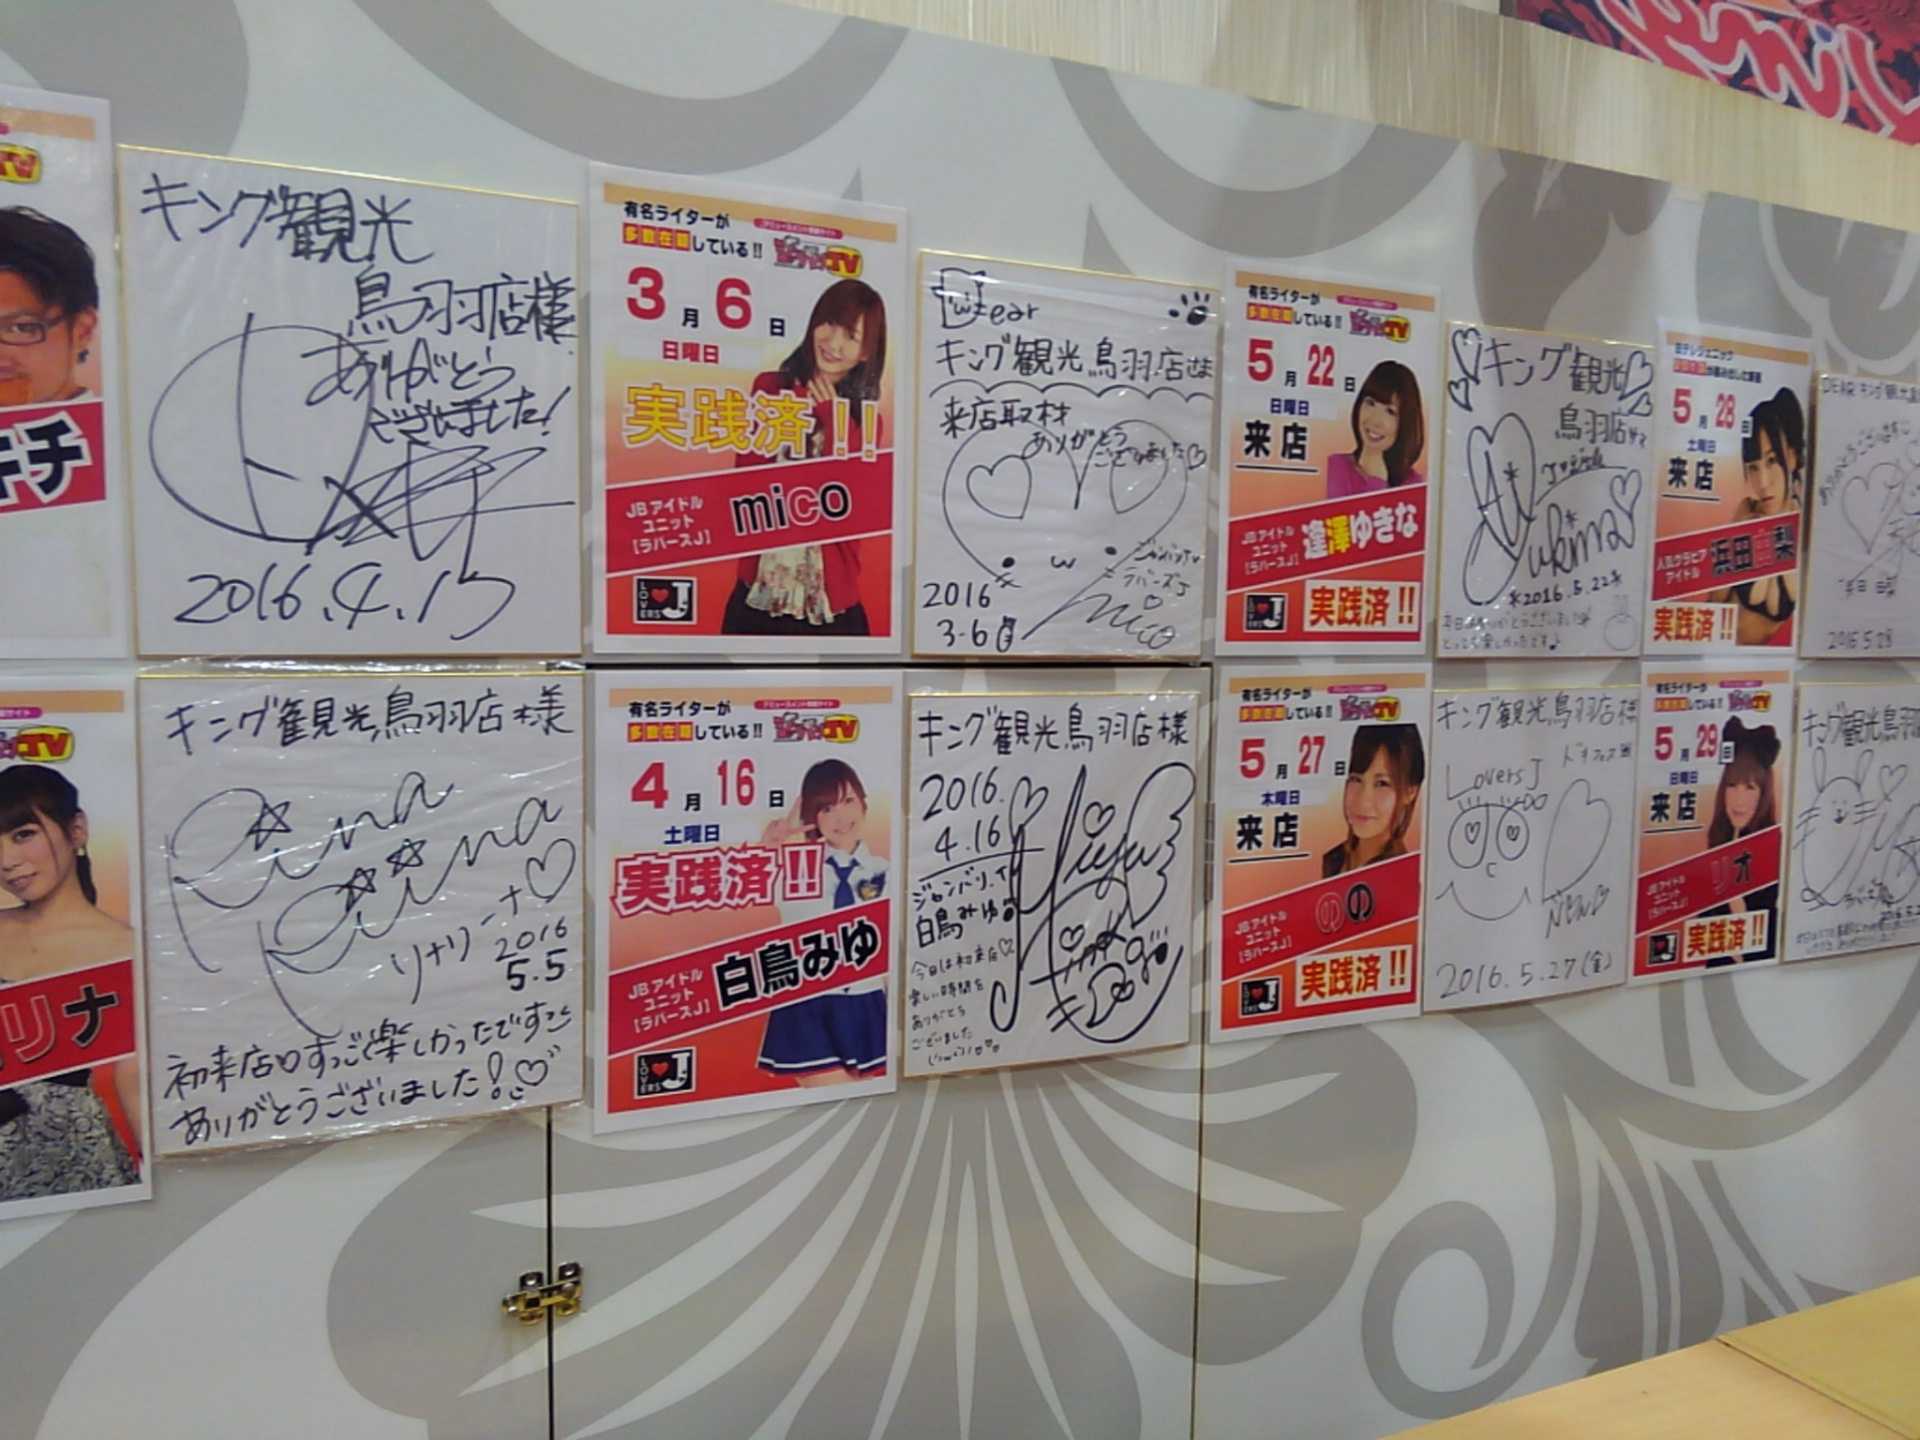 TV
キチ
キング観光
鳥羽店様
ありがとう
ございました!
2016.4.13
有名ライターが
多数在籍している!!
TV
3月6日
日曜日
実践済!!
JBアイドル
ユニット
[ラバースJ]
mico
LOVERS J
Dear
キング観光鳥羽店さま
来店取材
ありがとう
ございました
ジャンバリTV
ラバーズJ
mico
2016
3.6
有名ライターが
多数在籍している!!
TV
5月22日
日曜日
来店
JBアイドル
ユニット
[ラバースJ]
逢澤ゆきな
実践済!!
キング観光
鳥羽店サマ
Yukina
*2016.5.22*
本日はありがとうございました
とっても楽しかったです♪
日テレジェニック
5月28日
土曜日
来店
人気グラビア
アイドル
浜田由梨
実践済!!
DEAR キング観光
ありがとうございます
浜田由梨
2016.5.28
TV
リナ
キング観光鳥羽店様
Riina
Riina
リナリーナ♡
2016
5.5
初来店♡すっごく楽しかったですっ
ありがとうございました!
有名ライターが
多数在籍している!!
TV
4月16日
土曜日
実践済!!
JBアイドル
ユニット
[ラバースJ]
白鳥みゆ
LOVERS J
キング観光鳥羽店様
2016.
4.16
ジャンバリ.TV
白鳥みゆ
今日は初来店♡
楽しい時間を
ありがとう
ございました
有名ライターが
多数在籍している!!
TV
5月27日
木曜日
来店
JBアイドル
ユニット
[ラバースJ]
のの
実践済!!
LOVERS J
キング観光鳥羽店様
Lovers J
2016.5.27(金)
有名ライターが
多数在籍している!!
TV
5月29日
日曜日
来店
JBアイドル
ユニット
[ラバースJ]
リオ
実践済!!
キング観光鳥羽